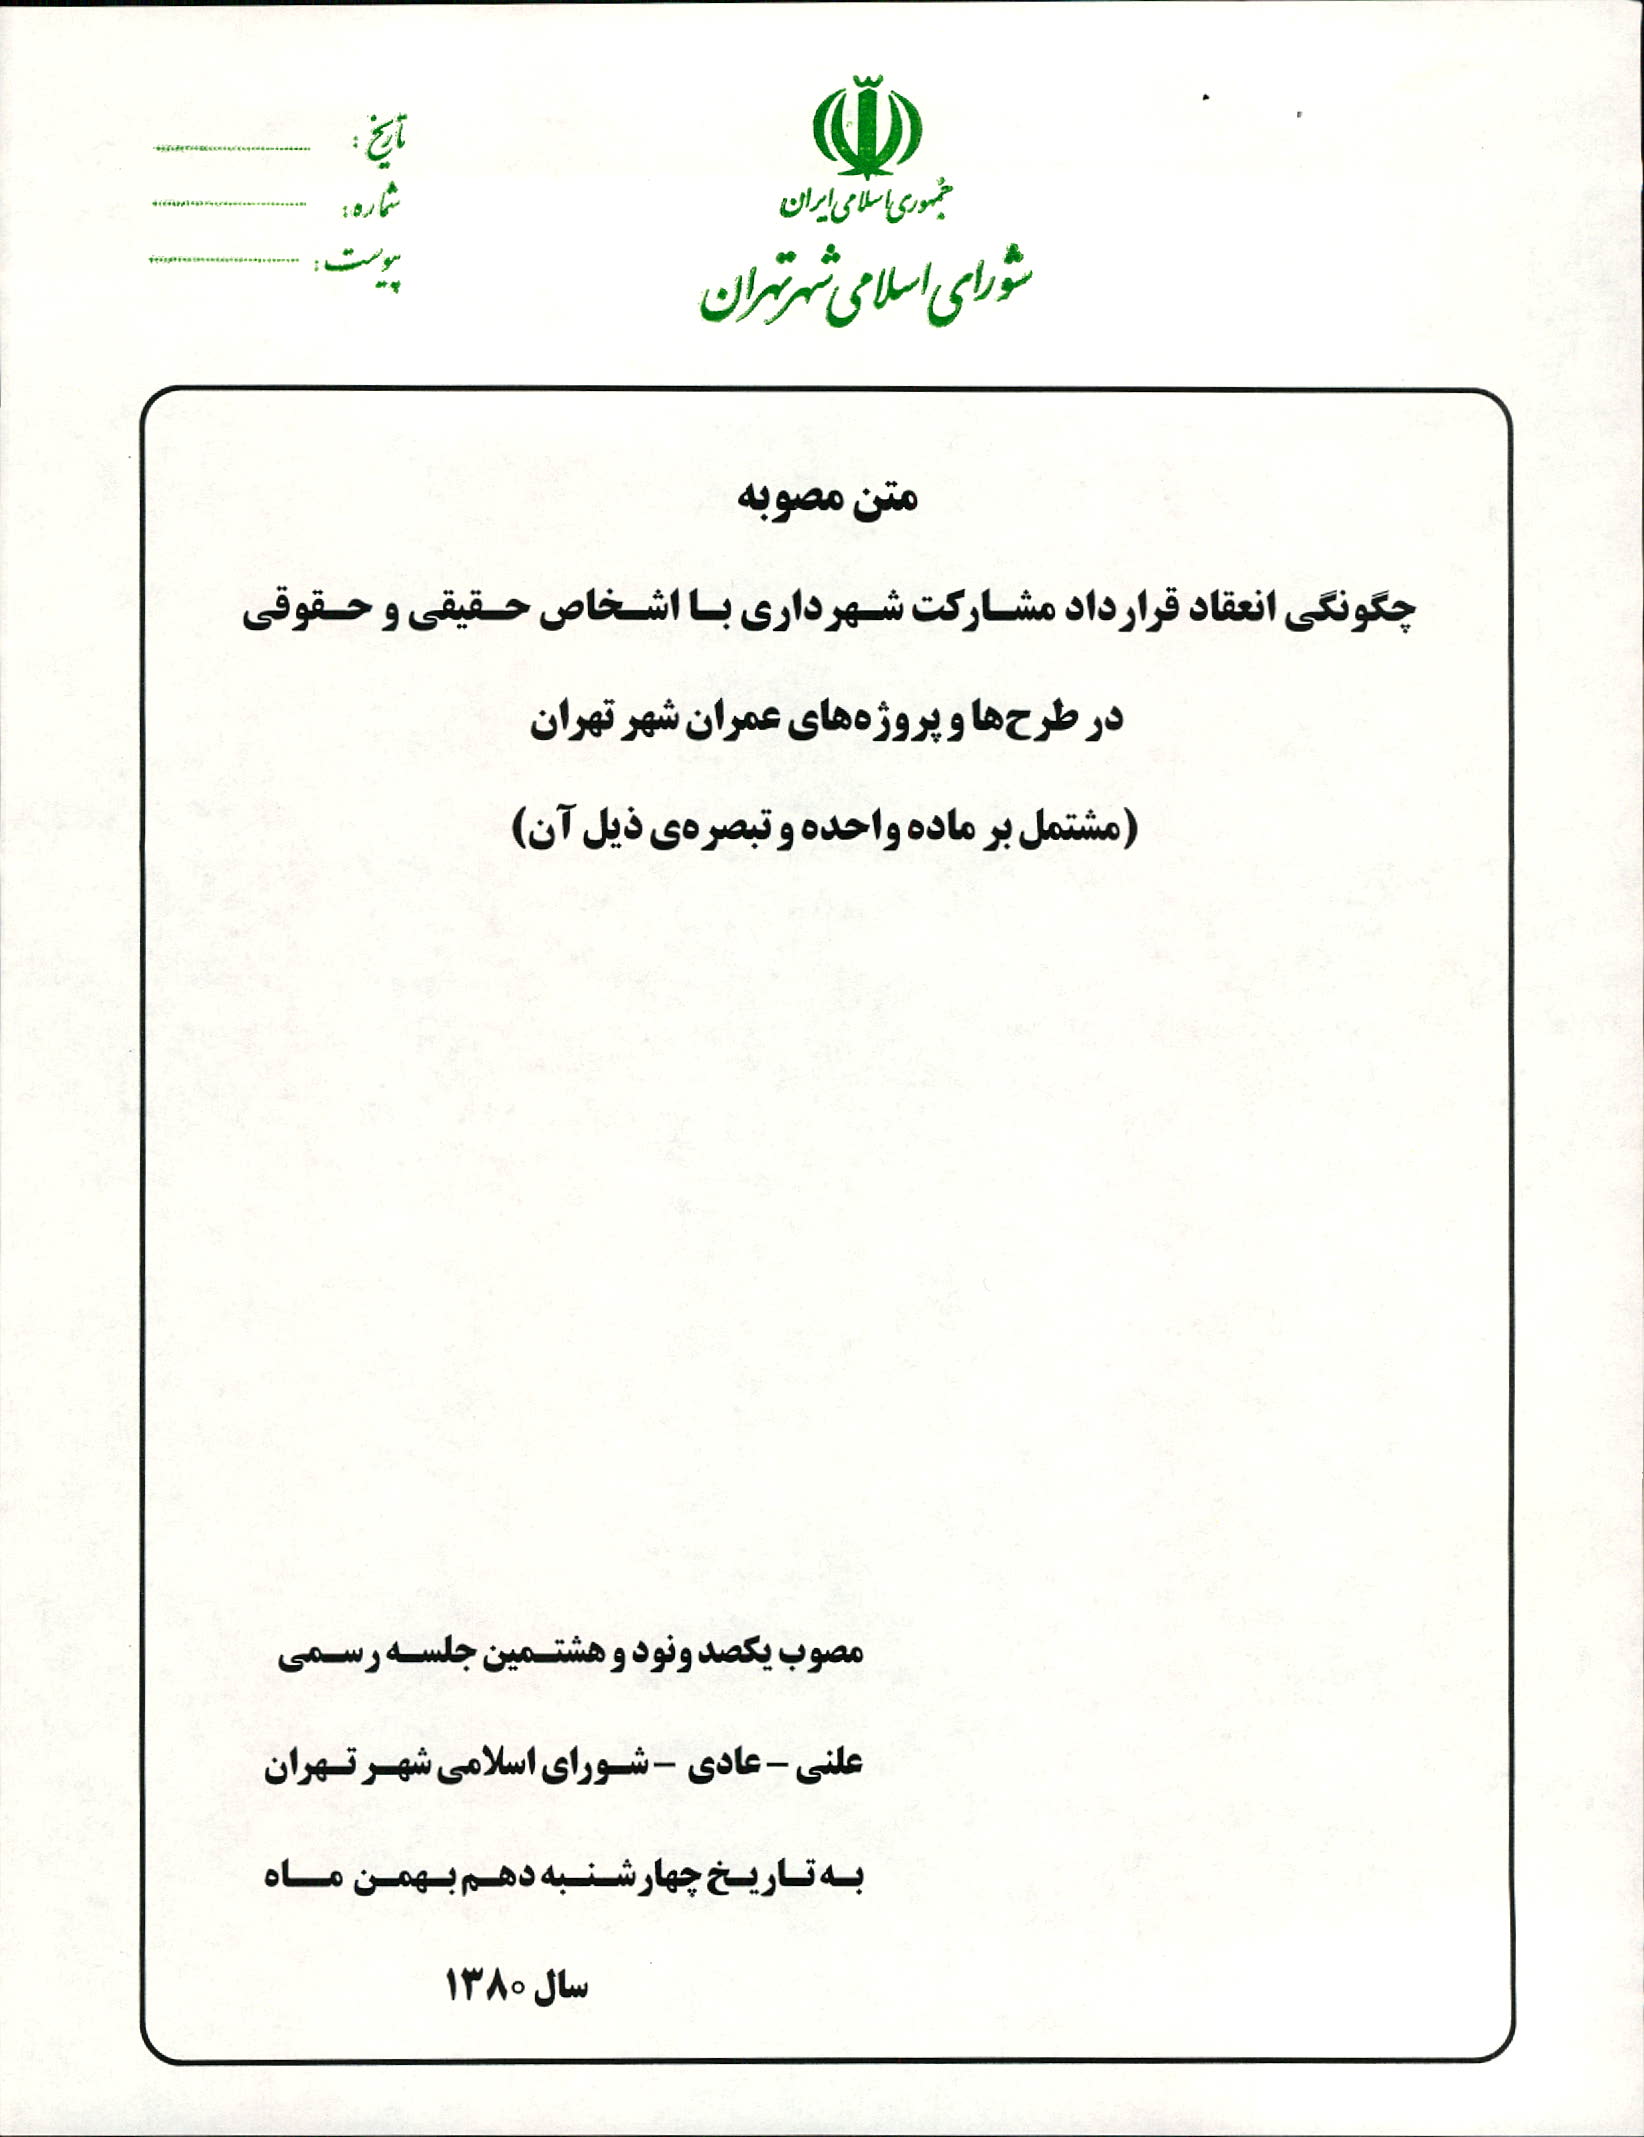 جمهوری اسلامی ایران
شورای اسلامی شهر تهران
تاریخ:
شماره:
پیوست:
متن مصوبه
چگونگی انعقاد قرارداد مشارکت شهرداری با اشخاص حقیقی و حقوقی
در طرح‌ها و پروژه‌های عمران شهر تهران
(مشتمل بر ماده واحده و تبصره‌ی ذیل آن)
مصوب یکصد و نود و هشتمین جلسه رسمی
علنی – عادی – شورای اسلامی شهر تهران
به تاریخ چهارشنبه دهم بهمن ماه
سال ۱۳۸۰